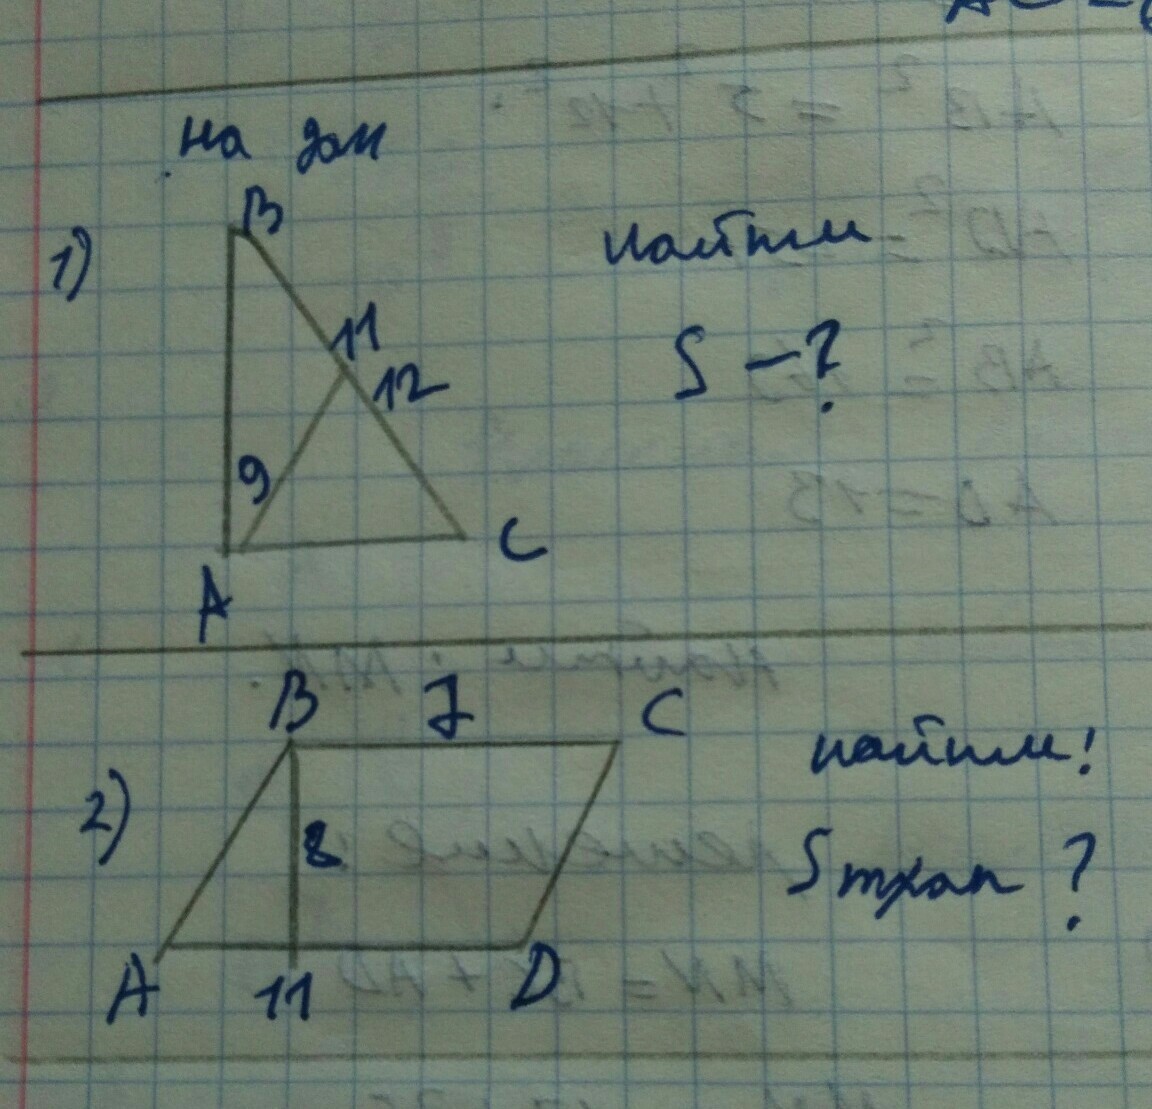 на дом
1)
B
11
12
9
A
C
найти
S - ?
2)
B
7
C
8
A
11
D
найти!
S трап ?